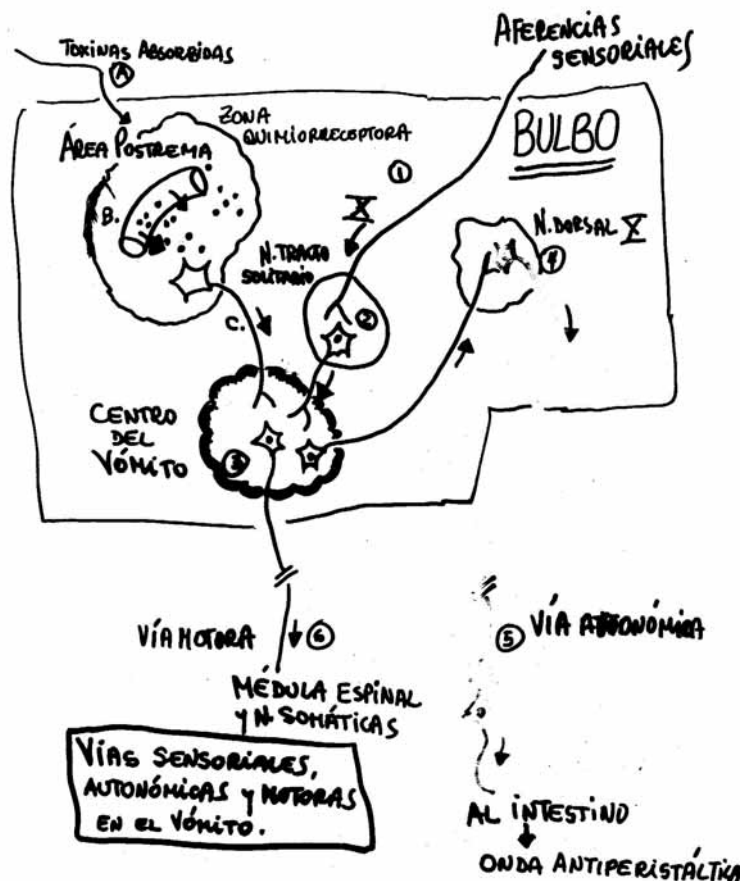 TOXINAS ABSORBIDAS
A
AFERENCIAS
SENSORIALES
ZONA
QUIMIORRECEPTORA
ÁREA POSTREMA
BULBO
1
B.
X
N. DORSAL X
N. TRACTO
SOLITARIO
4
2
C.
CENTRO
DEL
VÓMITO
3
VÍA MOTORA
6
5
VÍA AUTONÓMICA
MÉDULA ESPINAL
y N. SOMÁTICAS
VÍAS SENSORIALES,
AUTONÓMICAS y MOTORAS
EN EL VÓMITO.
AL INTESTINO
ONDA ANTIPERISTÁLTICA